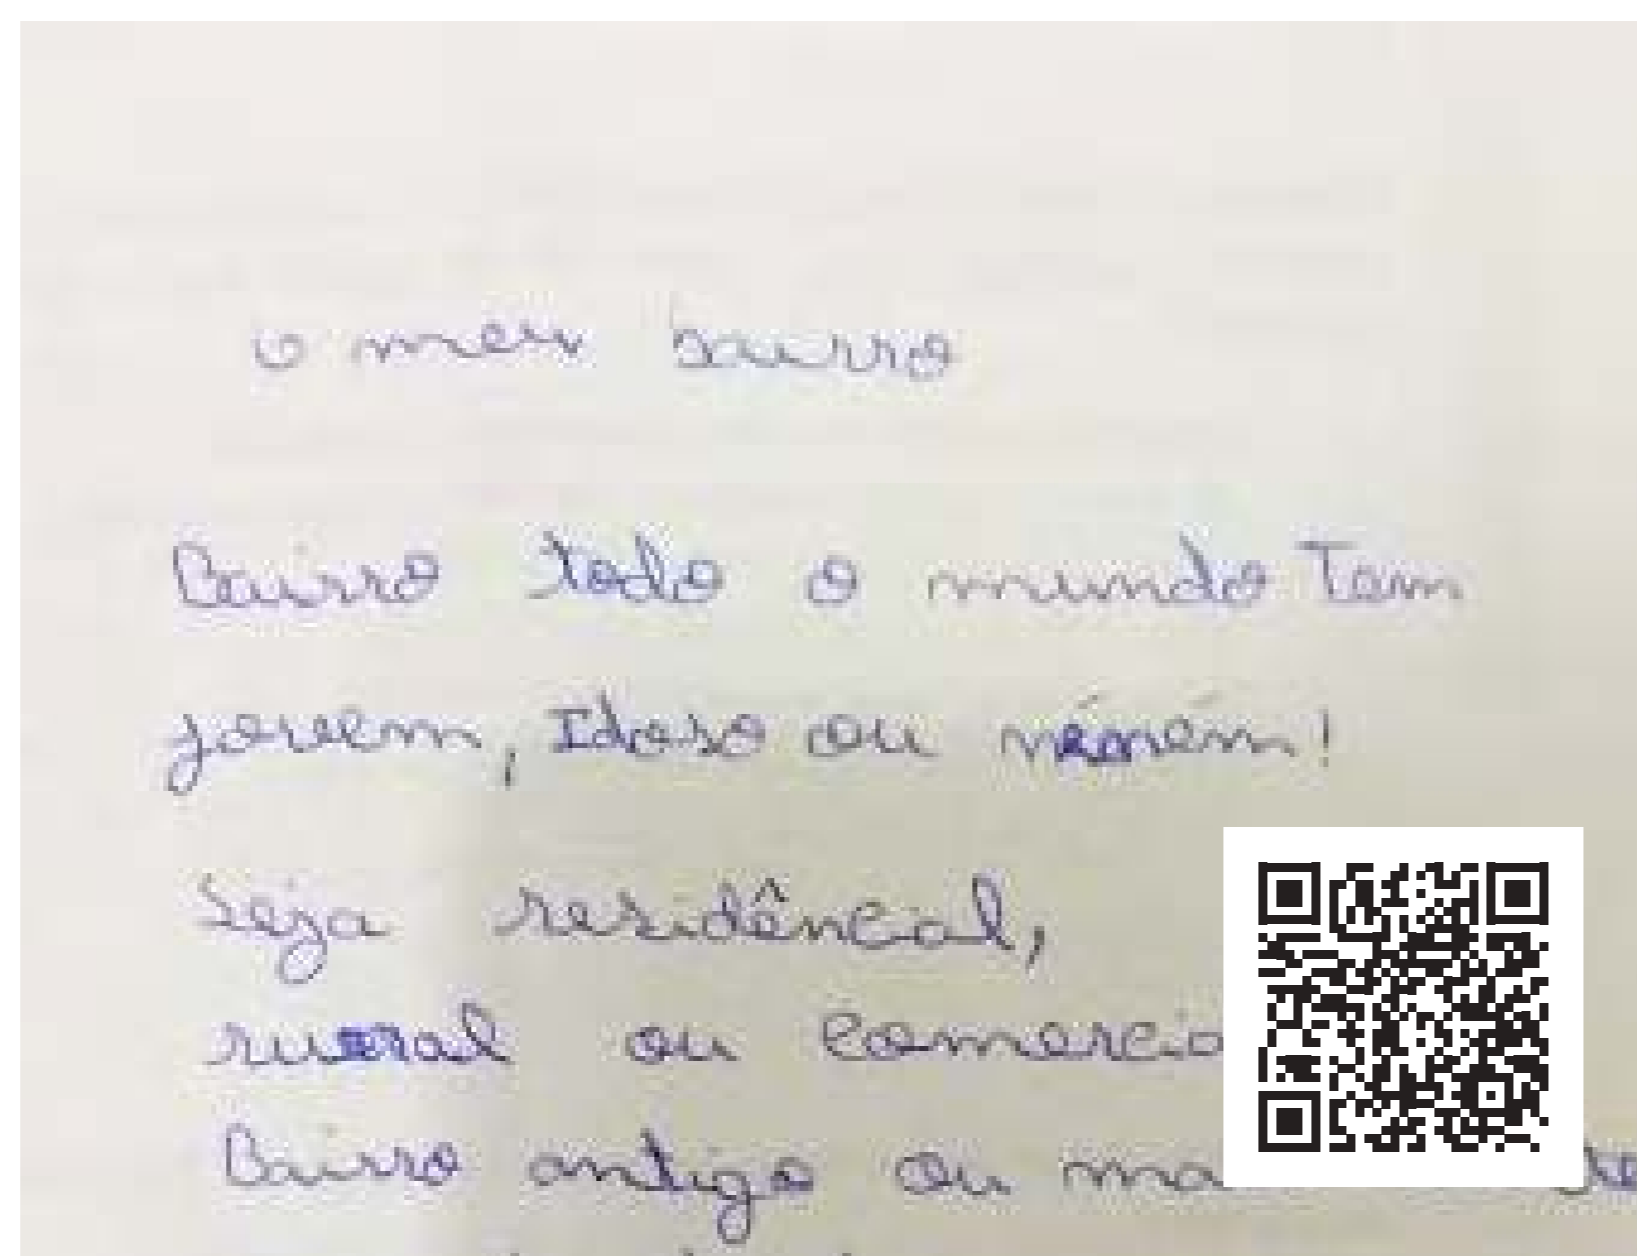 o meu bairro
Bairro todo o mundo tem
jovem, Idoso ou néném!
Seja residêncial,
rural ou comercia
Bairro antigo ou ma